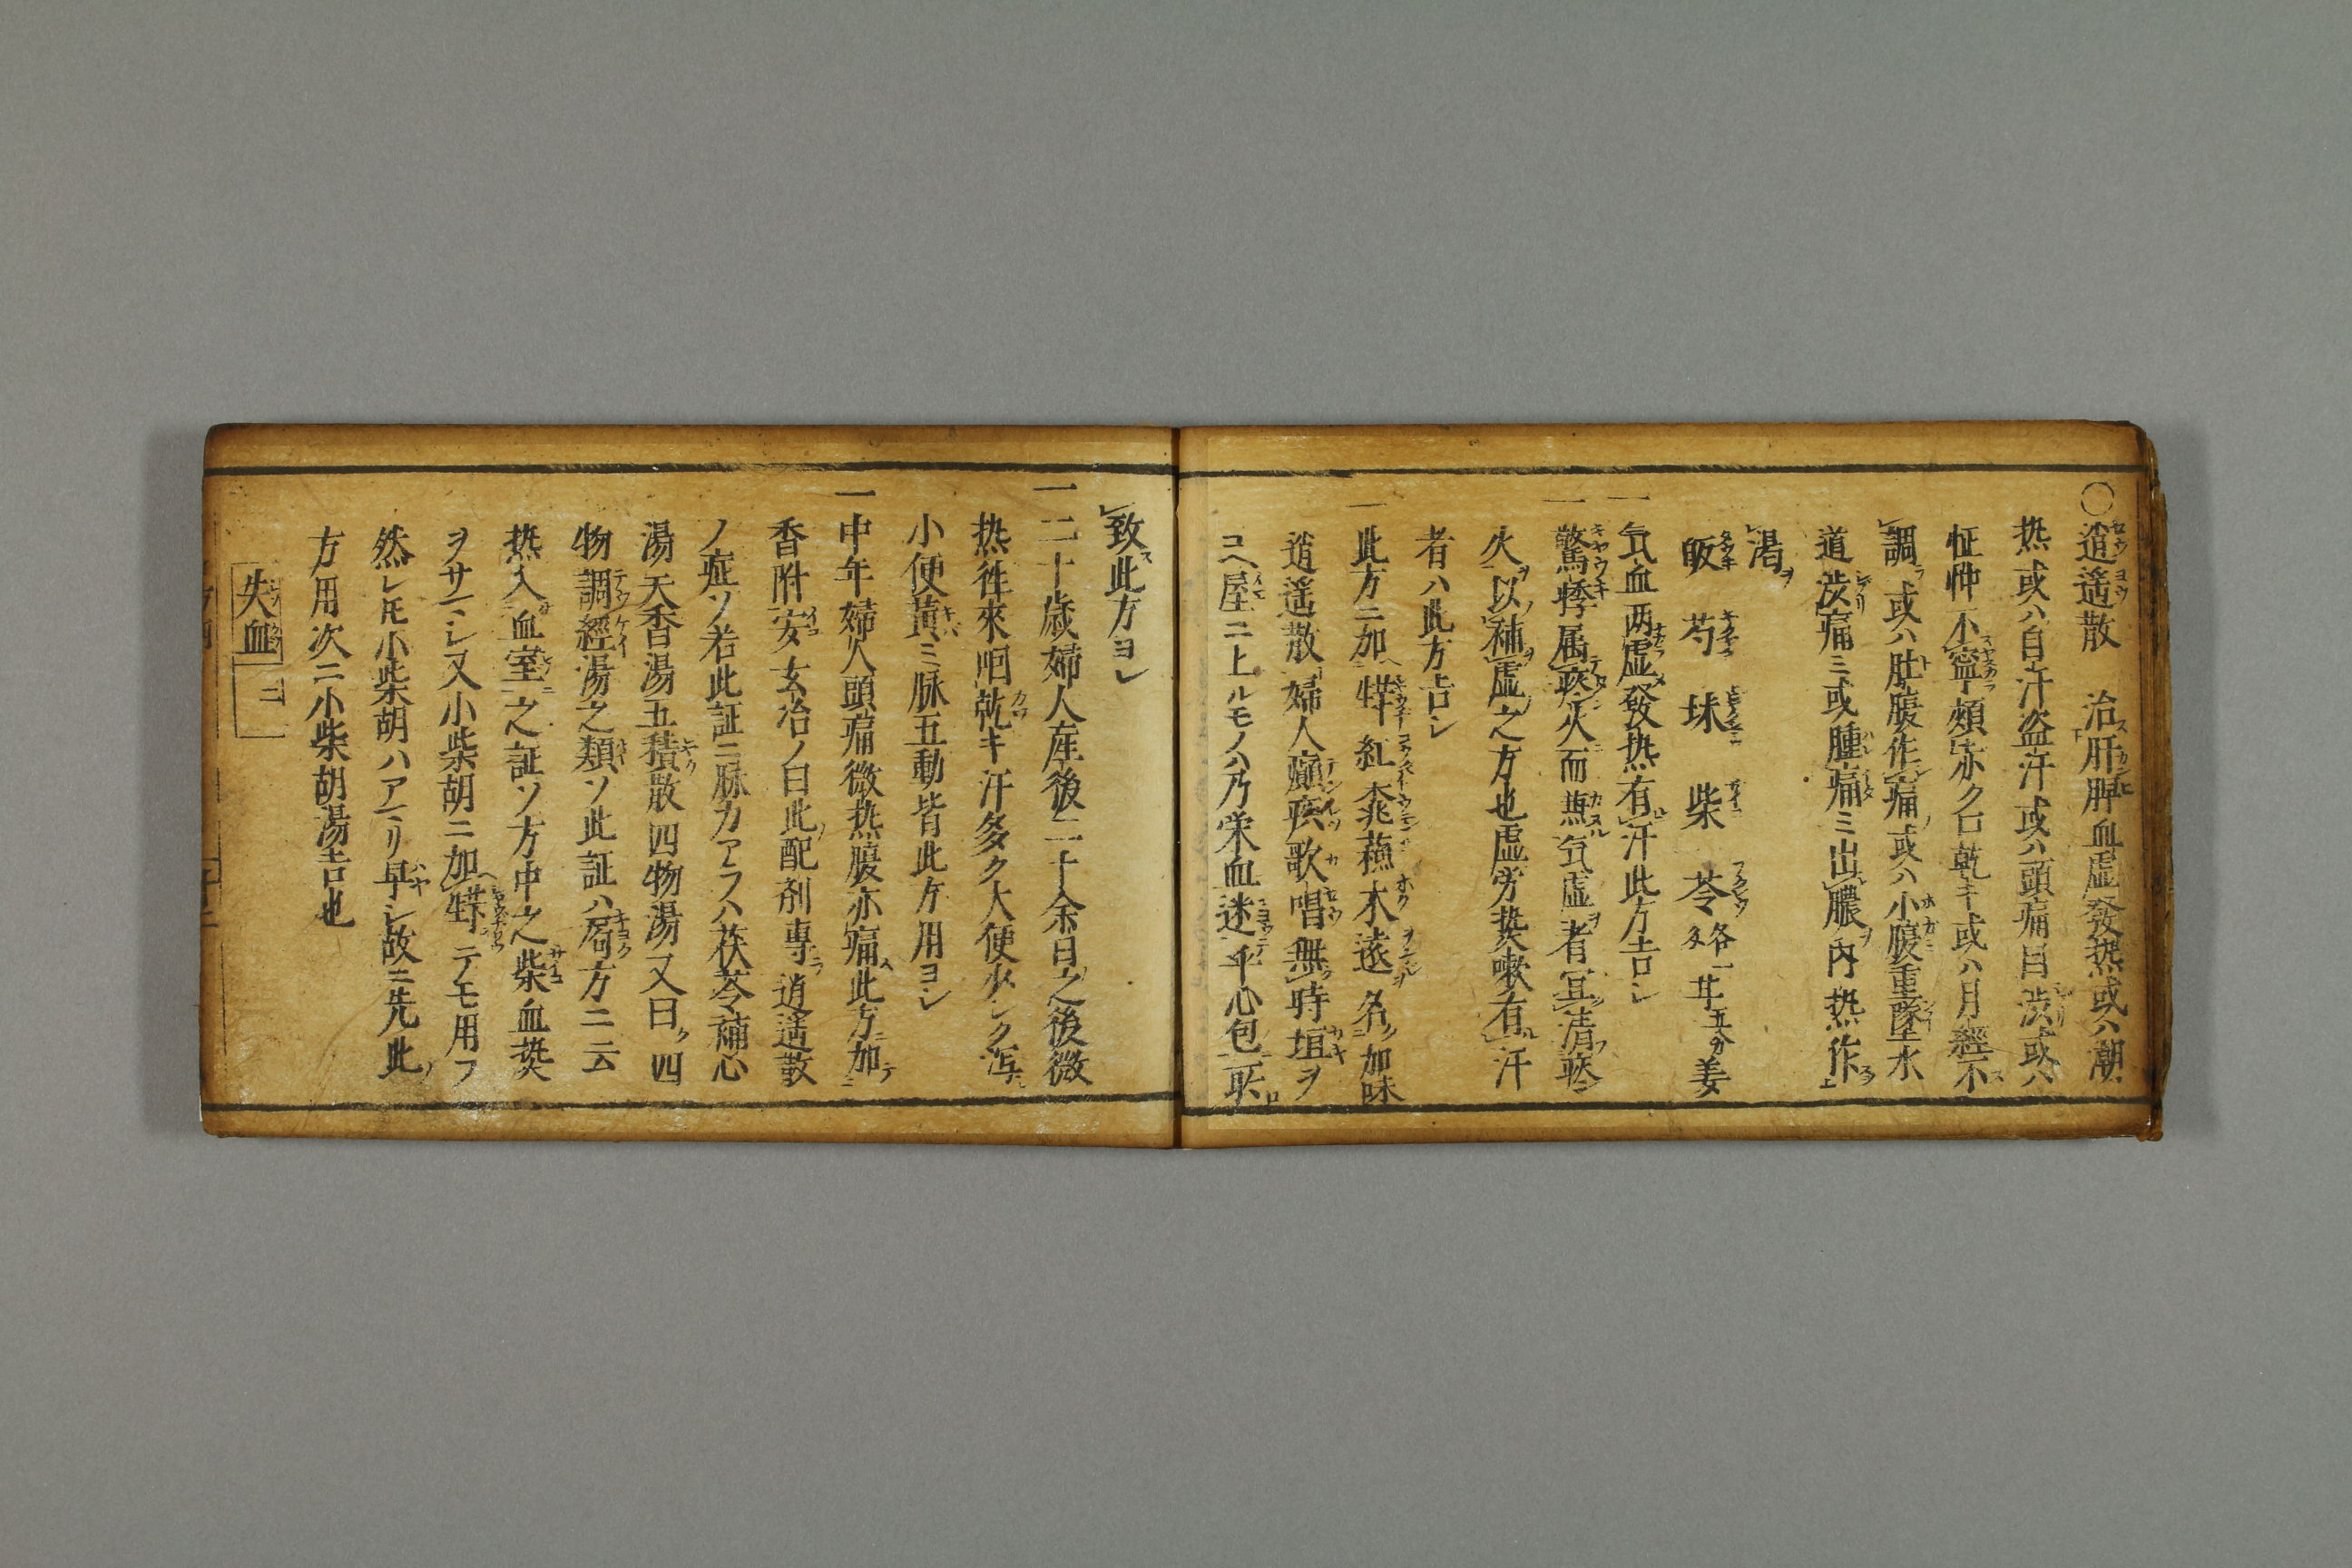 ○逍遥散 治肝脾血虚發热或ハ潮
热或ハ自汗盗汗或ハ頭痛目渋或ハ
怔忡不寧頰赤ク口乾キ或ハ月經不
調或ハ肚腹作痛或ハ小腹重墜水
道渋痛ミ或腫痛ミ出膿内热作
渇ヲ
皈 芍 柴 苓 各一 五分 姜
一気血両虚發热有汗此方吉シ
一驚悸属痰火而兼気虚者宜清痰
火以補虚之方也虚労热嗽有汗
者ハ此方吉シ
一此方ニ加 紅 木 遠 名加味
逍遥散婦人癲疾歌唱無時垣ヲ
コヘ屋ニ上ルモノハ乃栄血迷于心包
致此方ヨシ
一二十歳婦人産後二十余日之後微
热徃來咽乾キ汗多ク大便少シク瀉
小便黄ミ脉五動皆此ケ用ヨシ
一中年婦人頭痛微热腹亦痛此方加
香附安玄冶ノ曰此配剤専逍遥散
ノ症ソ若此証ニ脉力アラハ茯苓補心
湯天香湯五積散四物湯又曰四
物調經湯之類ソ此証ハ局方ニ云
热入血室之証ソ方中之柴血热
ヲサマシ又小柴胡ニ加 テモ用フ
然レ𪜈小柴胡ハアマリ早シ故ニ先此
方用次ニ小柴胡湯吉也
失血 二